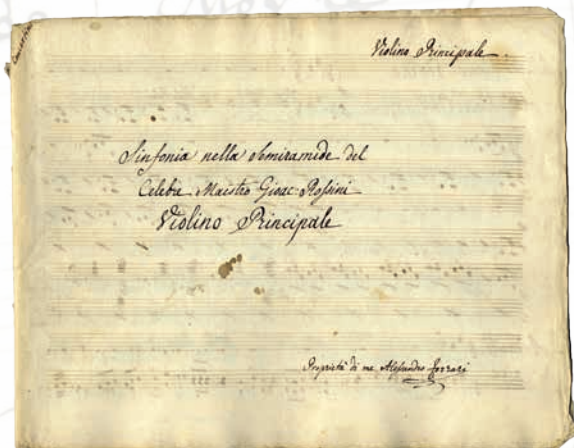 Violino Principale
Sinfonia nella Semiramide del
Celebre Maestro Gioac. Rossini
Violino Principale
Proprietà di me Alessandro Ferrari